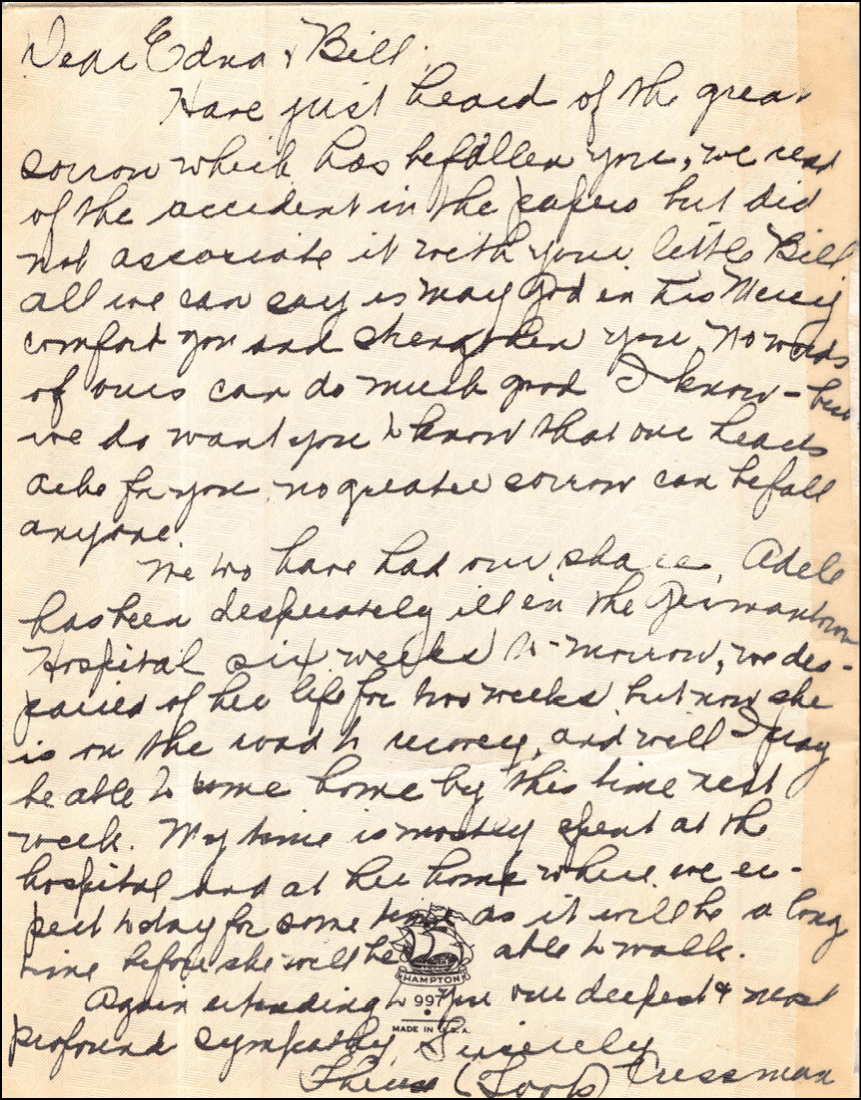 Dear Edna & Bill.
Have just heard of the great
sorrow which has befallen you, we read
of the accident in the papers but did
not associate it with your little Bill
all we can say is may God in His Mercy
comfort you and strengthen you. No words
of ours can do much good I know - but
we do want you to know that our hearts
ache for you. no greater sorrow can befall
anyone.
We two have had our share. Adele
has been desperately ill in the Germantown
Hospital six weeks to-morrow, we des-
paired of her life for two weeks but now she
is on the road to recovery, and will I pray
be able to come home by this time next
week. My time is mostly spent at the
hospital and at her home where we ex-
pect to stay for some time as it will be a long
time before she will be able to walk.
HAMPTON
Again extending to you our deepest & most
997
MADE IN U.S.A.
profound sympathy, Sincerely
(Loos) Cressman